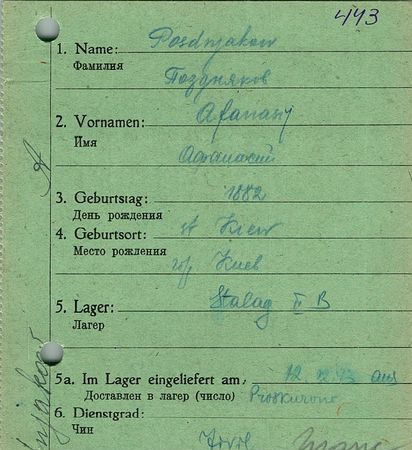 443
1. Name: Posdnjakow
Фамилия
Поздняков
2. Vornamen: Afanasij
Имя
Афанасий
3. Geburtstag: 1882
День рождения
4. Geburtsort: st Kiew
Место рождения
гор Киев
5. Lager: Stalag II B
Лагер
5a. Im Lager eingeliefert am: 12. 43 aus
Доставлен в лагер (число) Proskurow
6. Dienstgrad:
Чин
Zivil